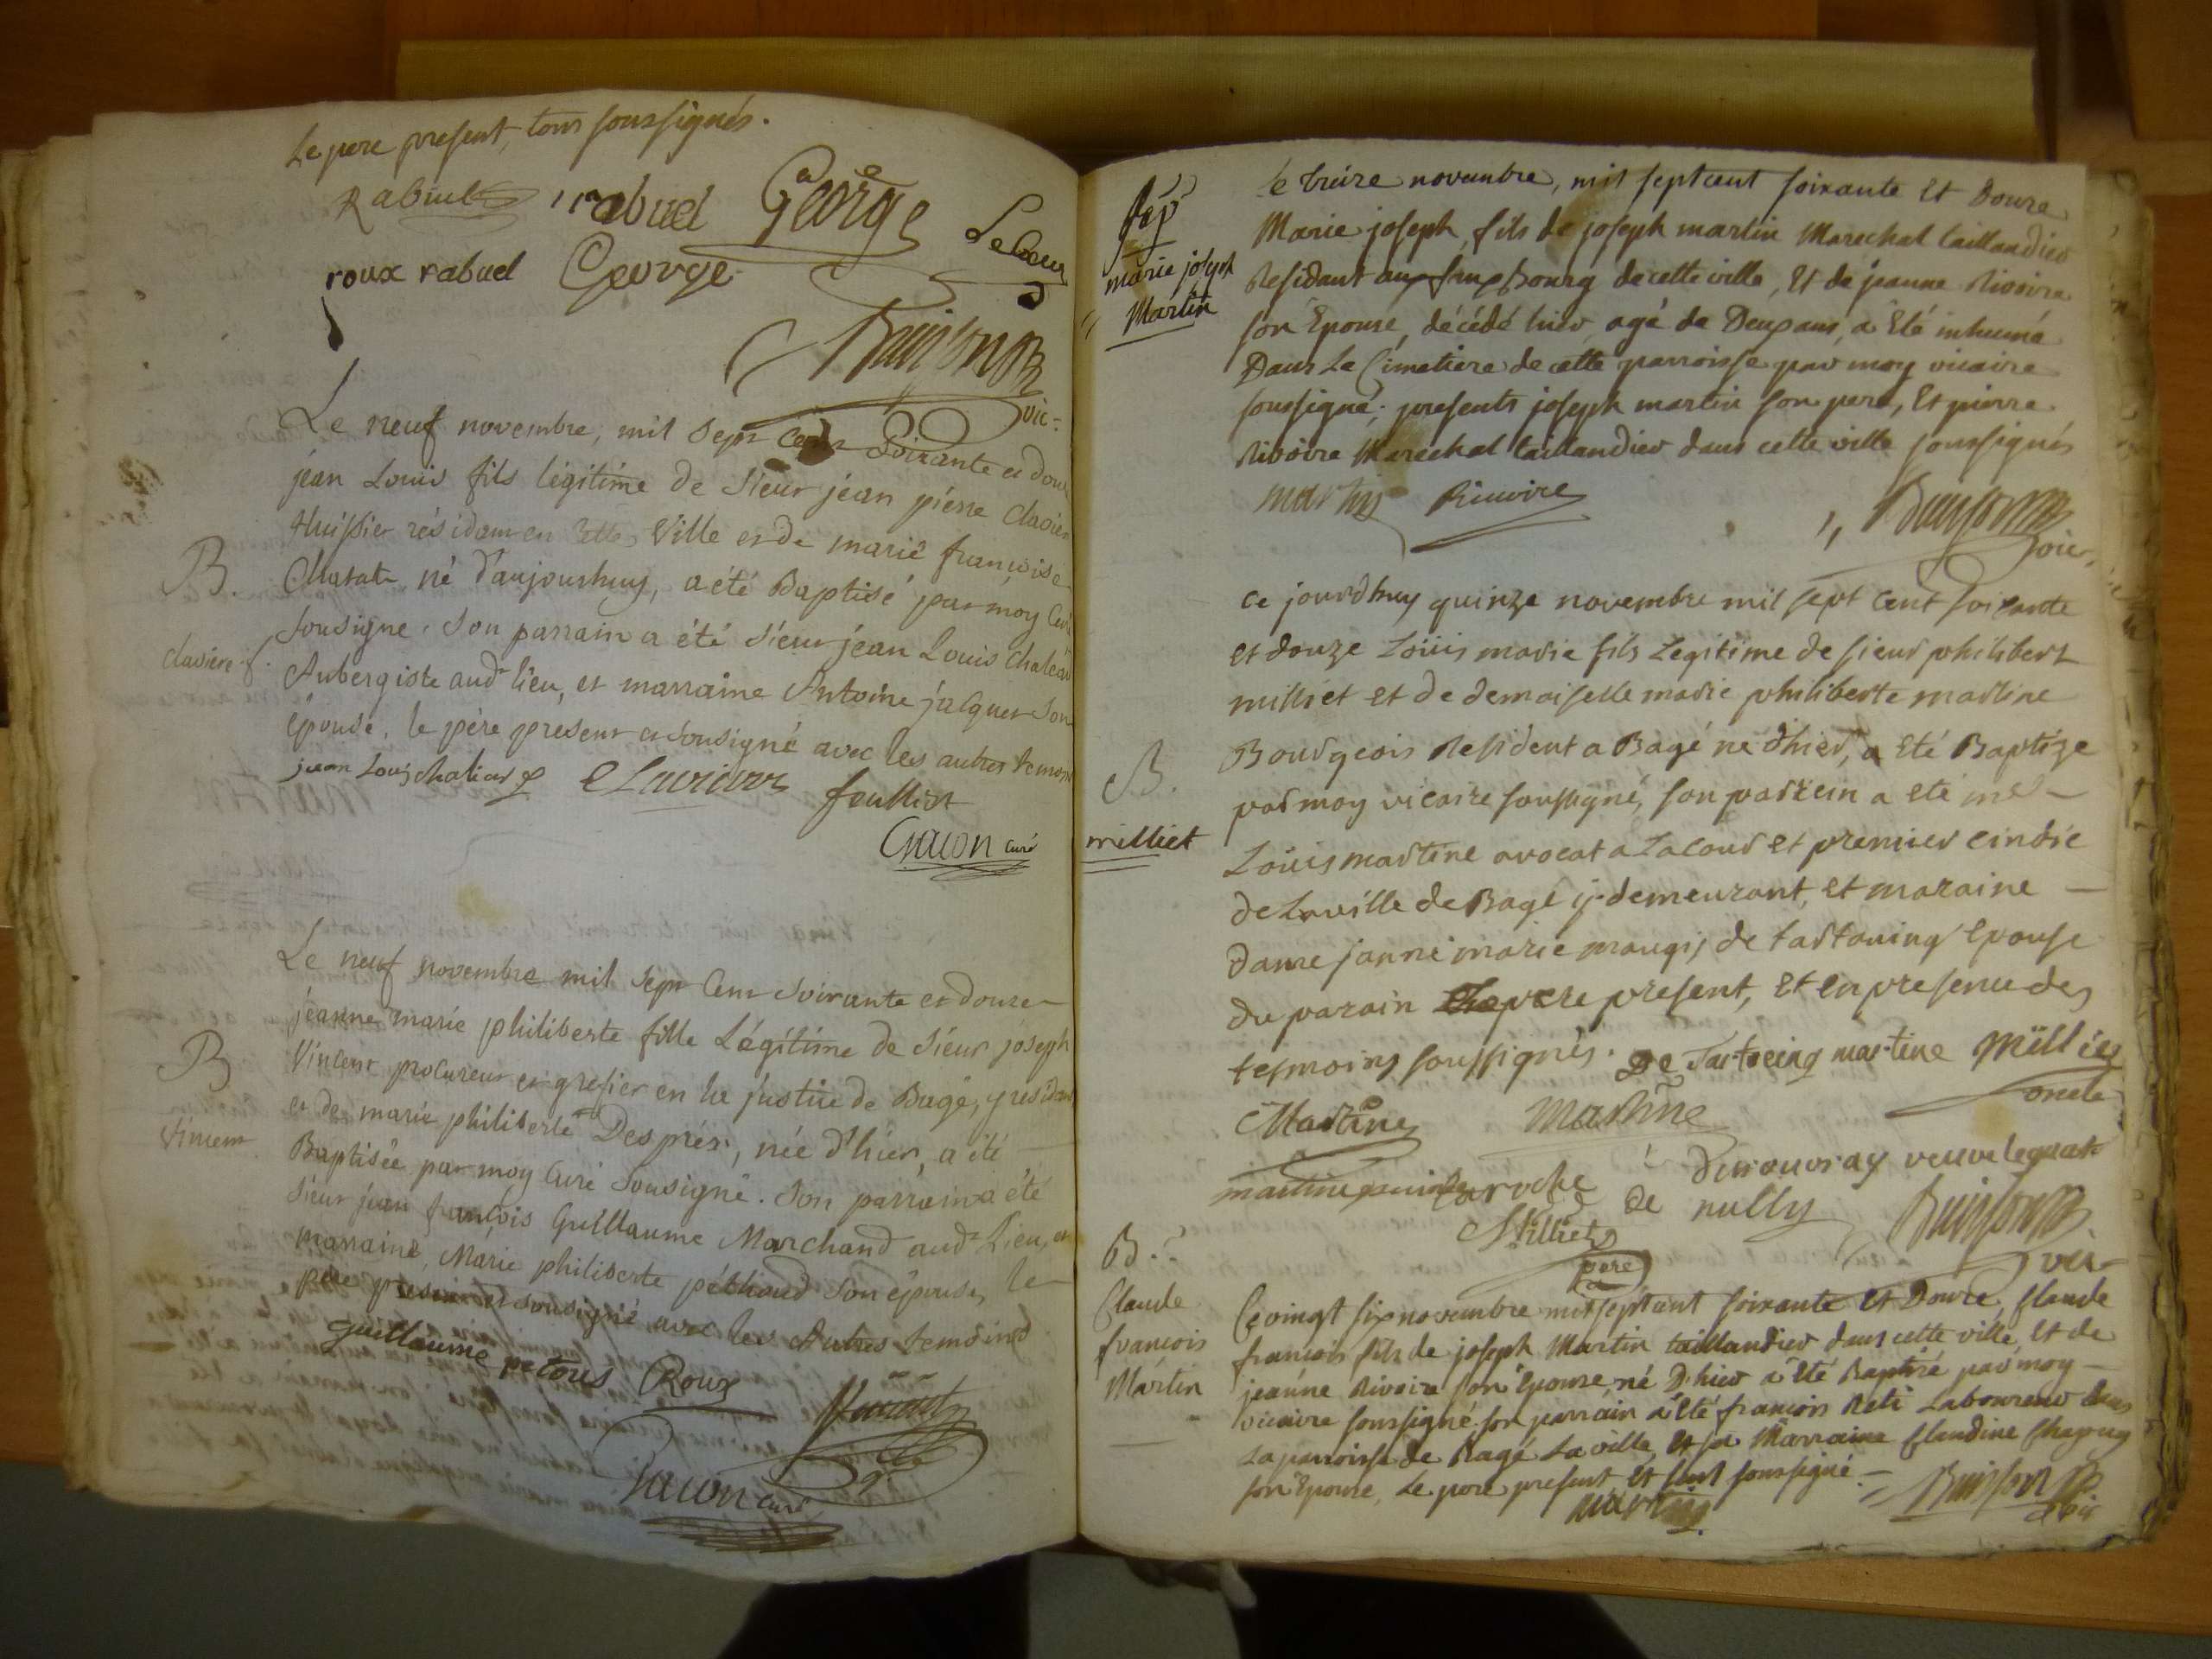 Le pere present, tous soussignés.
Rabuel rabuel George
roux rabuel George
Buisson
vic-
Le neuf novembre, mil sept cent Soixante et douze
jéan Louis fils légitime de Sieur jéan piérre
Huissier résidant en Cette Ville et de marie françoise
né d'aujourhuy, a été Baptisé par moy Curé
Sousigné, Son parrain a été Sieur jéan Louis
Aubergiste aud lieu, et marraine Antoine jacquet Son
épouse, le père présent et Sousigné avec les autres temoins
B.
claviere f.
jean Louis
curé
Le neuf novembre mil Sept Cent Soixante et douze
jéanne marie philiberte fille Légitime de Sieur joseph
Vincent procureur et grefier en la justice de Bagé, y résidant
et de marie philiberte Després, née d'hiér, a été
Baptisée par moy Curé Sousigné. Son parrain a été
Sieur jean françois Guillaume Marchand aud Lieu, et
marraine, Marie philiberte Son épouse, le
père present et sousigné avec les Autres temoins
B
Vincent
guillaume Roux
curé
marie joseph
Martin
Le treize novembre, mil septcent soixante Et Douze
Marie joseph, fils de joseph martin Marechal taillandier
Residant au fauxbourg de cette ville, Et de jeanne Rivoire
son Epouse, décédé hier, agé de Deux ans, a Eté inhumé
Dans Le Cimetiere de cette parroisse par moy vicaire
soussigné; presents joseph martin son pere, Et pierre
Rivoire Marechal taillandier dans cette ville soussignés
martin Rivoire Buisson
vic-
ce jourdhuy quinze novembre mil sept cent soixante
et douze Loüis marie fils Legitime de sieur philibert
milliet et de demoiselle marie philiberte martine
Bourgeois Resident a Bagé né d'hier, a Eté Baptize
par moy vicaire soussigné, son parrein a eté
Loüis martine avocat a La cour et premier cindic
de La ville de Bagé y demeurant, et maraine
dame janne marie maugis de tartouing Epouse
du parain le pere present, Et en presence des
tesmoins soussignés. De martine Milliet
oncle
B.
milliet
Martine Martine
veuve
laroche de nully Buisson
Milliet
pere
vic-
B.
Claude
françois
Martin
Le vingt six novembre mil septcent soixante Et Douze, Claude
francois fils de joseph Martin taillandier dans cette ville, Et de
jeanne Rivoire son Epouse, né D'hier a Eté Baptisé par moy
vicaire soussigné. son parrain a Eté francois Reti Laboureur dans
La parroisse de Bagé La ville, Et sa Marraine Claudine
son Epouse, Le pere present Et seul soussigné
martin Buisson
vic